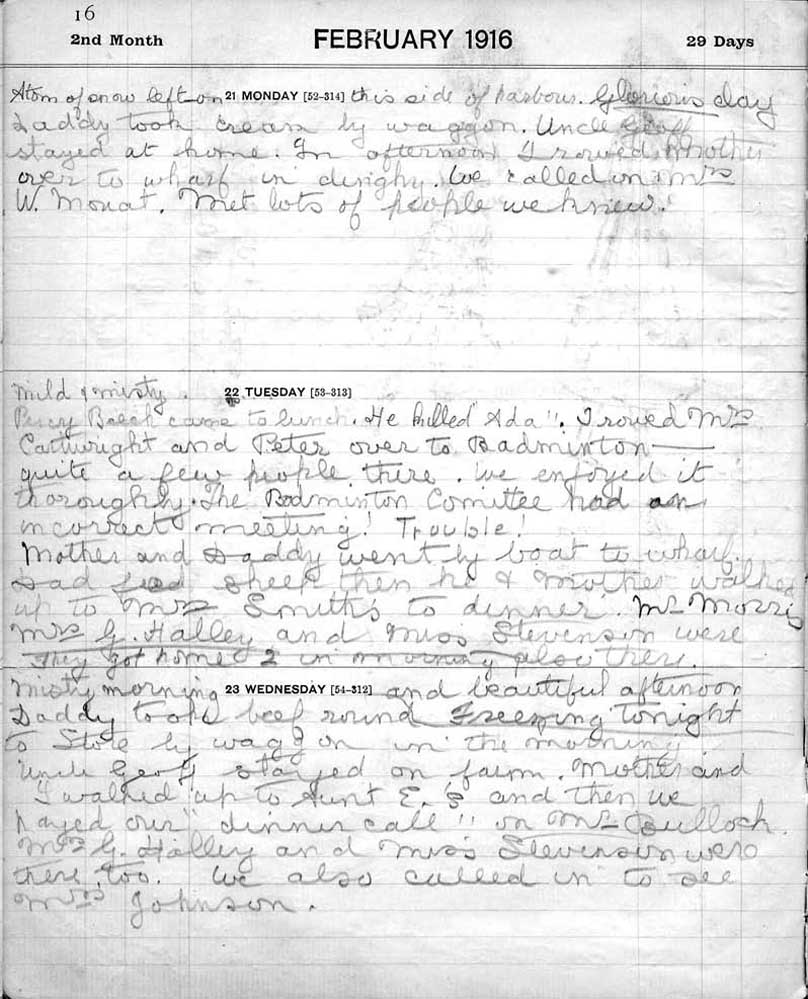 16
2nd Month FEBRUARY 1916 29 Days
Atom of snow left on 21 MONDAY [52-314] this side of harbour. Glorious day
Daddy took cream by waggon. Uncle Geoff
stayed at home. In afternoon I rowed Mother
over to wharf in dinghy. We called on Mrs
W. Mouat. Met lots of people we knew!
Mild & misty. 22 TUESDAY [53-313]
Percy Beech came to lunch. He killed "Ada". I rowed Mrs
Cartwright and Peter over to Badminton —
quite a few people there. We enjoyed it
thoroughly. The Badminton Comittee had an
incorrect meeting! Trouble!
Mother and Daddy went by boat to wharf.
Dad feed sheep then he & Mother walked
up to Mrs Smith's to dinner. Mr Morris
Mrs G. Halley and Miss Stevenson were
They got home 2 in morning also there.
Misty morning 23 WEDNESDAY [54-312] and beautiful afternoon
Daddy took beef round Freezing tonight
to Store by waggon in the morning
Uncle Geoff stayed on farm. Mother and
I walked up to Aunt E.'s and then we
payed our "dinner call" on Mrs Bulloch.
Mrs G. Halley and Miss Stevenson were
there, too. We also called in to see
Mrs Johnson.